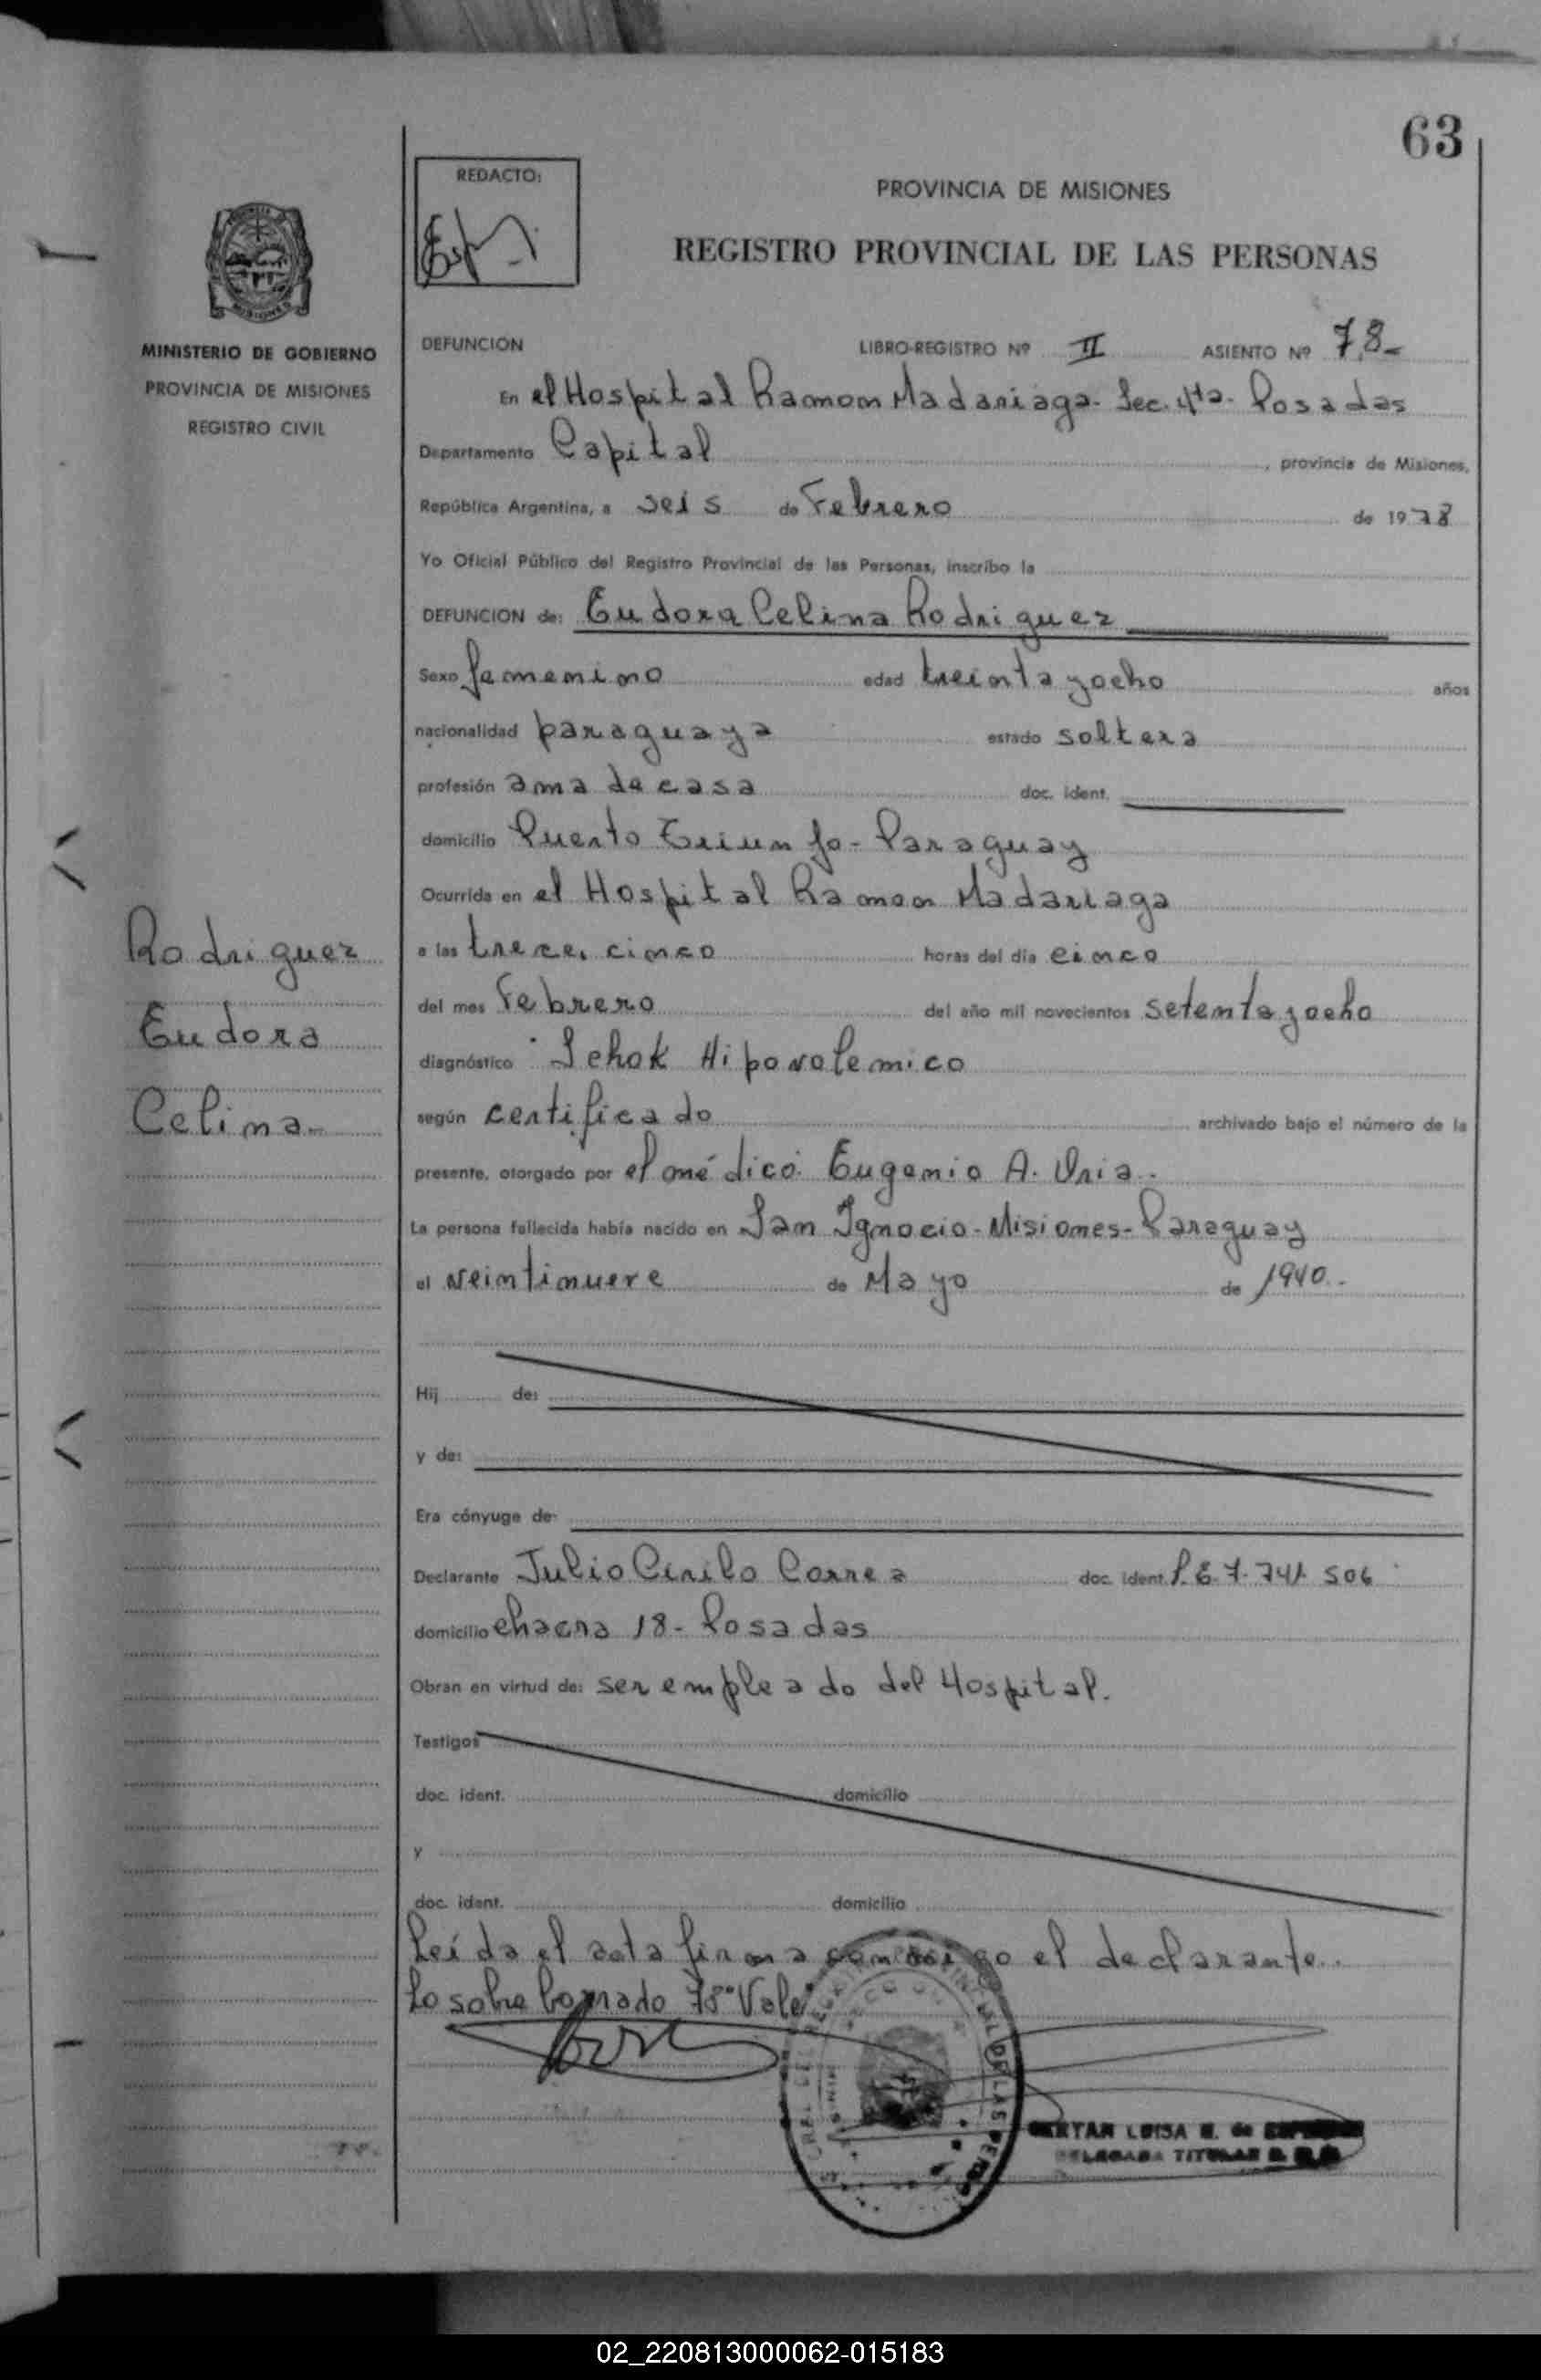 63
REDACTO:
PROVINCIA DE MISIONES
REGISTRO PROVINCIAL DE LAS PERSONAS
MINISTERIO DE GOBIERNO
PROVINCIA DE MISIONES
REGISTRO CIVIL
DEFUNCION LIBRO-REGISTRO Nº II ASIENTO Nº 78-
En el Hospital Ramon Madariaga- Sec. 4ta- Posadas
Departamento Capital, provincia de Misiones,
República Argentina, a seis de Febrero de 1978
Yo Oficial Público del Registro Provincial de las Personas, inscribo la
DEFUNCION de: Eudora Celina Rodriguez
Sexo femenino edad treinta y ocho años
nacionalidad paraguaya estado soltera
profesión ama de casa doc. ident.
domicilio Puerto Triunfo- Paraguay
Ocurrida en el Hospital Ramon Madariaga
a las trece, cinco horas del día cinco
del mes Febrero del año mil novecientos setenta y ocho
diagnóstico Schok Hipovolemico
según certificado archivado bajo el número de la
presente, otorgado por el médico: Eugenio A. Uria.
La persona fallecida había nacido en San Ignacio- Misiones- Paraguay
el veintinueve de Mayo de 1940.
Rodriguez
Eudora
Celina-
Hij de:
y de:
Era cónyuge de:
Declarante Julio Cirilo Correa doc. ident. L.E. 7.741.506
domicilio chacra 18- Posadas
Obran en virtud de: ser empleado del Hospital.
Testigos
doc. ident. domicilio
y
doc. ident. domicilio
Leída el acta firma conmigo el declarante.
Lo sobre borrado 78" Vale
LUISA de
TITULAR
02_220813000062-015183